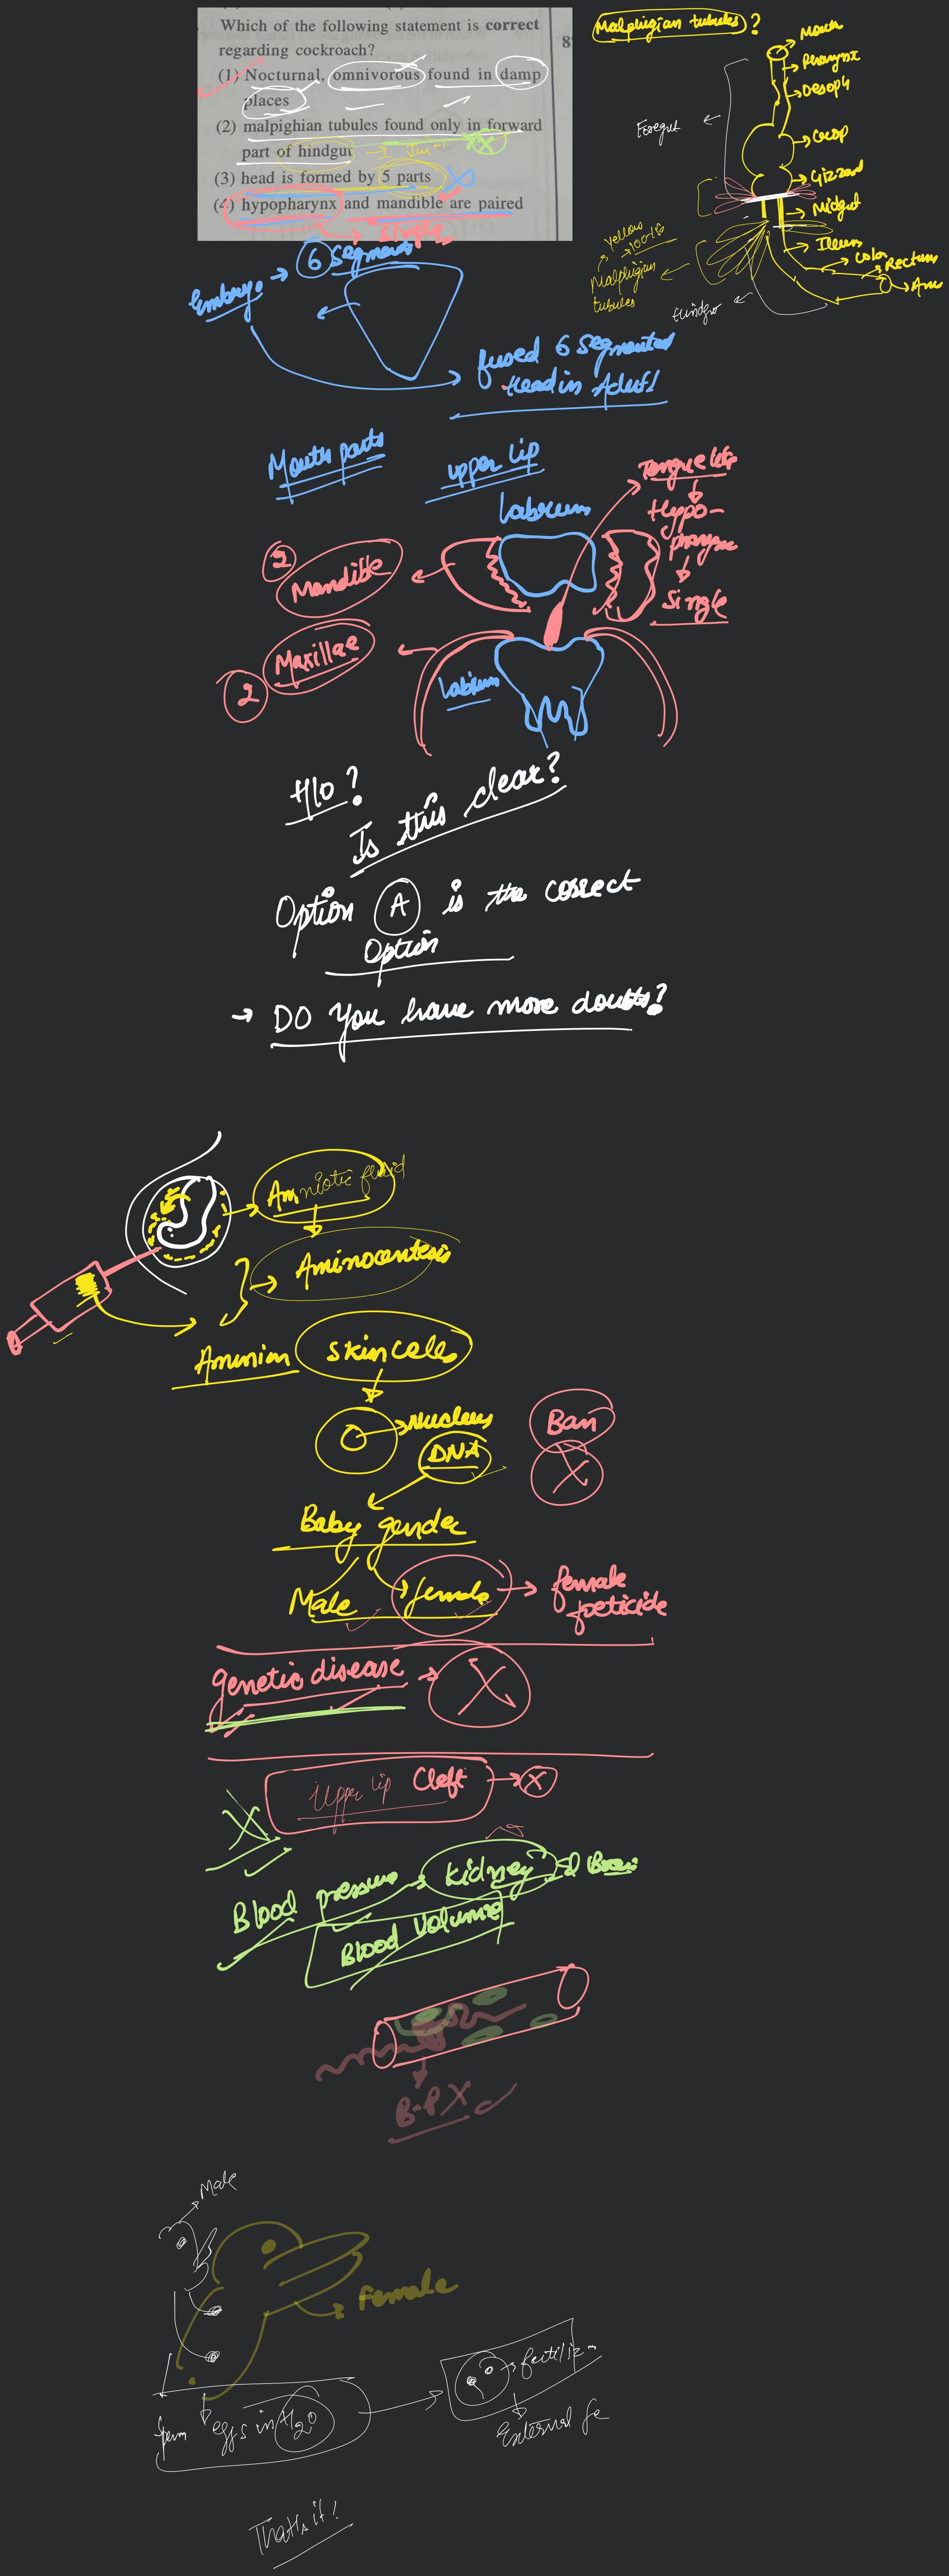 Which of the following statement is correct
regarding cockroach?
8
(1) Nocturnal, omnivorous found in damp
places
(2) malpighian tubules found only in forward
part of hindgut
(X)
(3) head is formed by 5 parts X
(4) hypopharynx and mandible are paired
single
Malphigian tubules?
Mouth
Pharynx
Oesoph
Foregut
Crop
Gizzard
Midgut
Ileum
Colon
Rectum
Anu
yellow
100-150
Malphigian
tubules
Hindgu
Embryo → 6 Segments
fused 6 segmented
Head in Adult!
Mouth parts
upper lip
Labrum
Tongue like
Hypo-
pharynx
Single
2
Mandible
Maxillae
2
Labium
Hlo?
Is this clear?
Option A is the correct
Option
→ DO you have more doubts?
Amniotic fluid
Aminocentesis
Amnion skin cells
Nucleus
DNA
Ban
X
Baby gender
Male female → female
foeticide
genetic disease → X
Upper lip Cleft → X
X
Blood pressure → kidney
Blood Volume
B.P X
Male
Female
Sperm eggs in H2O
fertiliz
External fe
That's it!